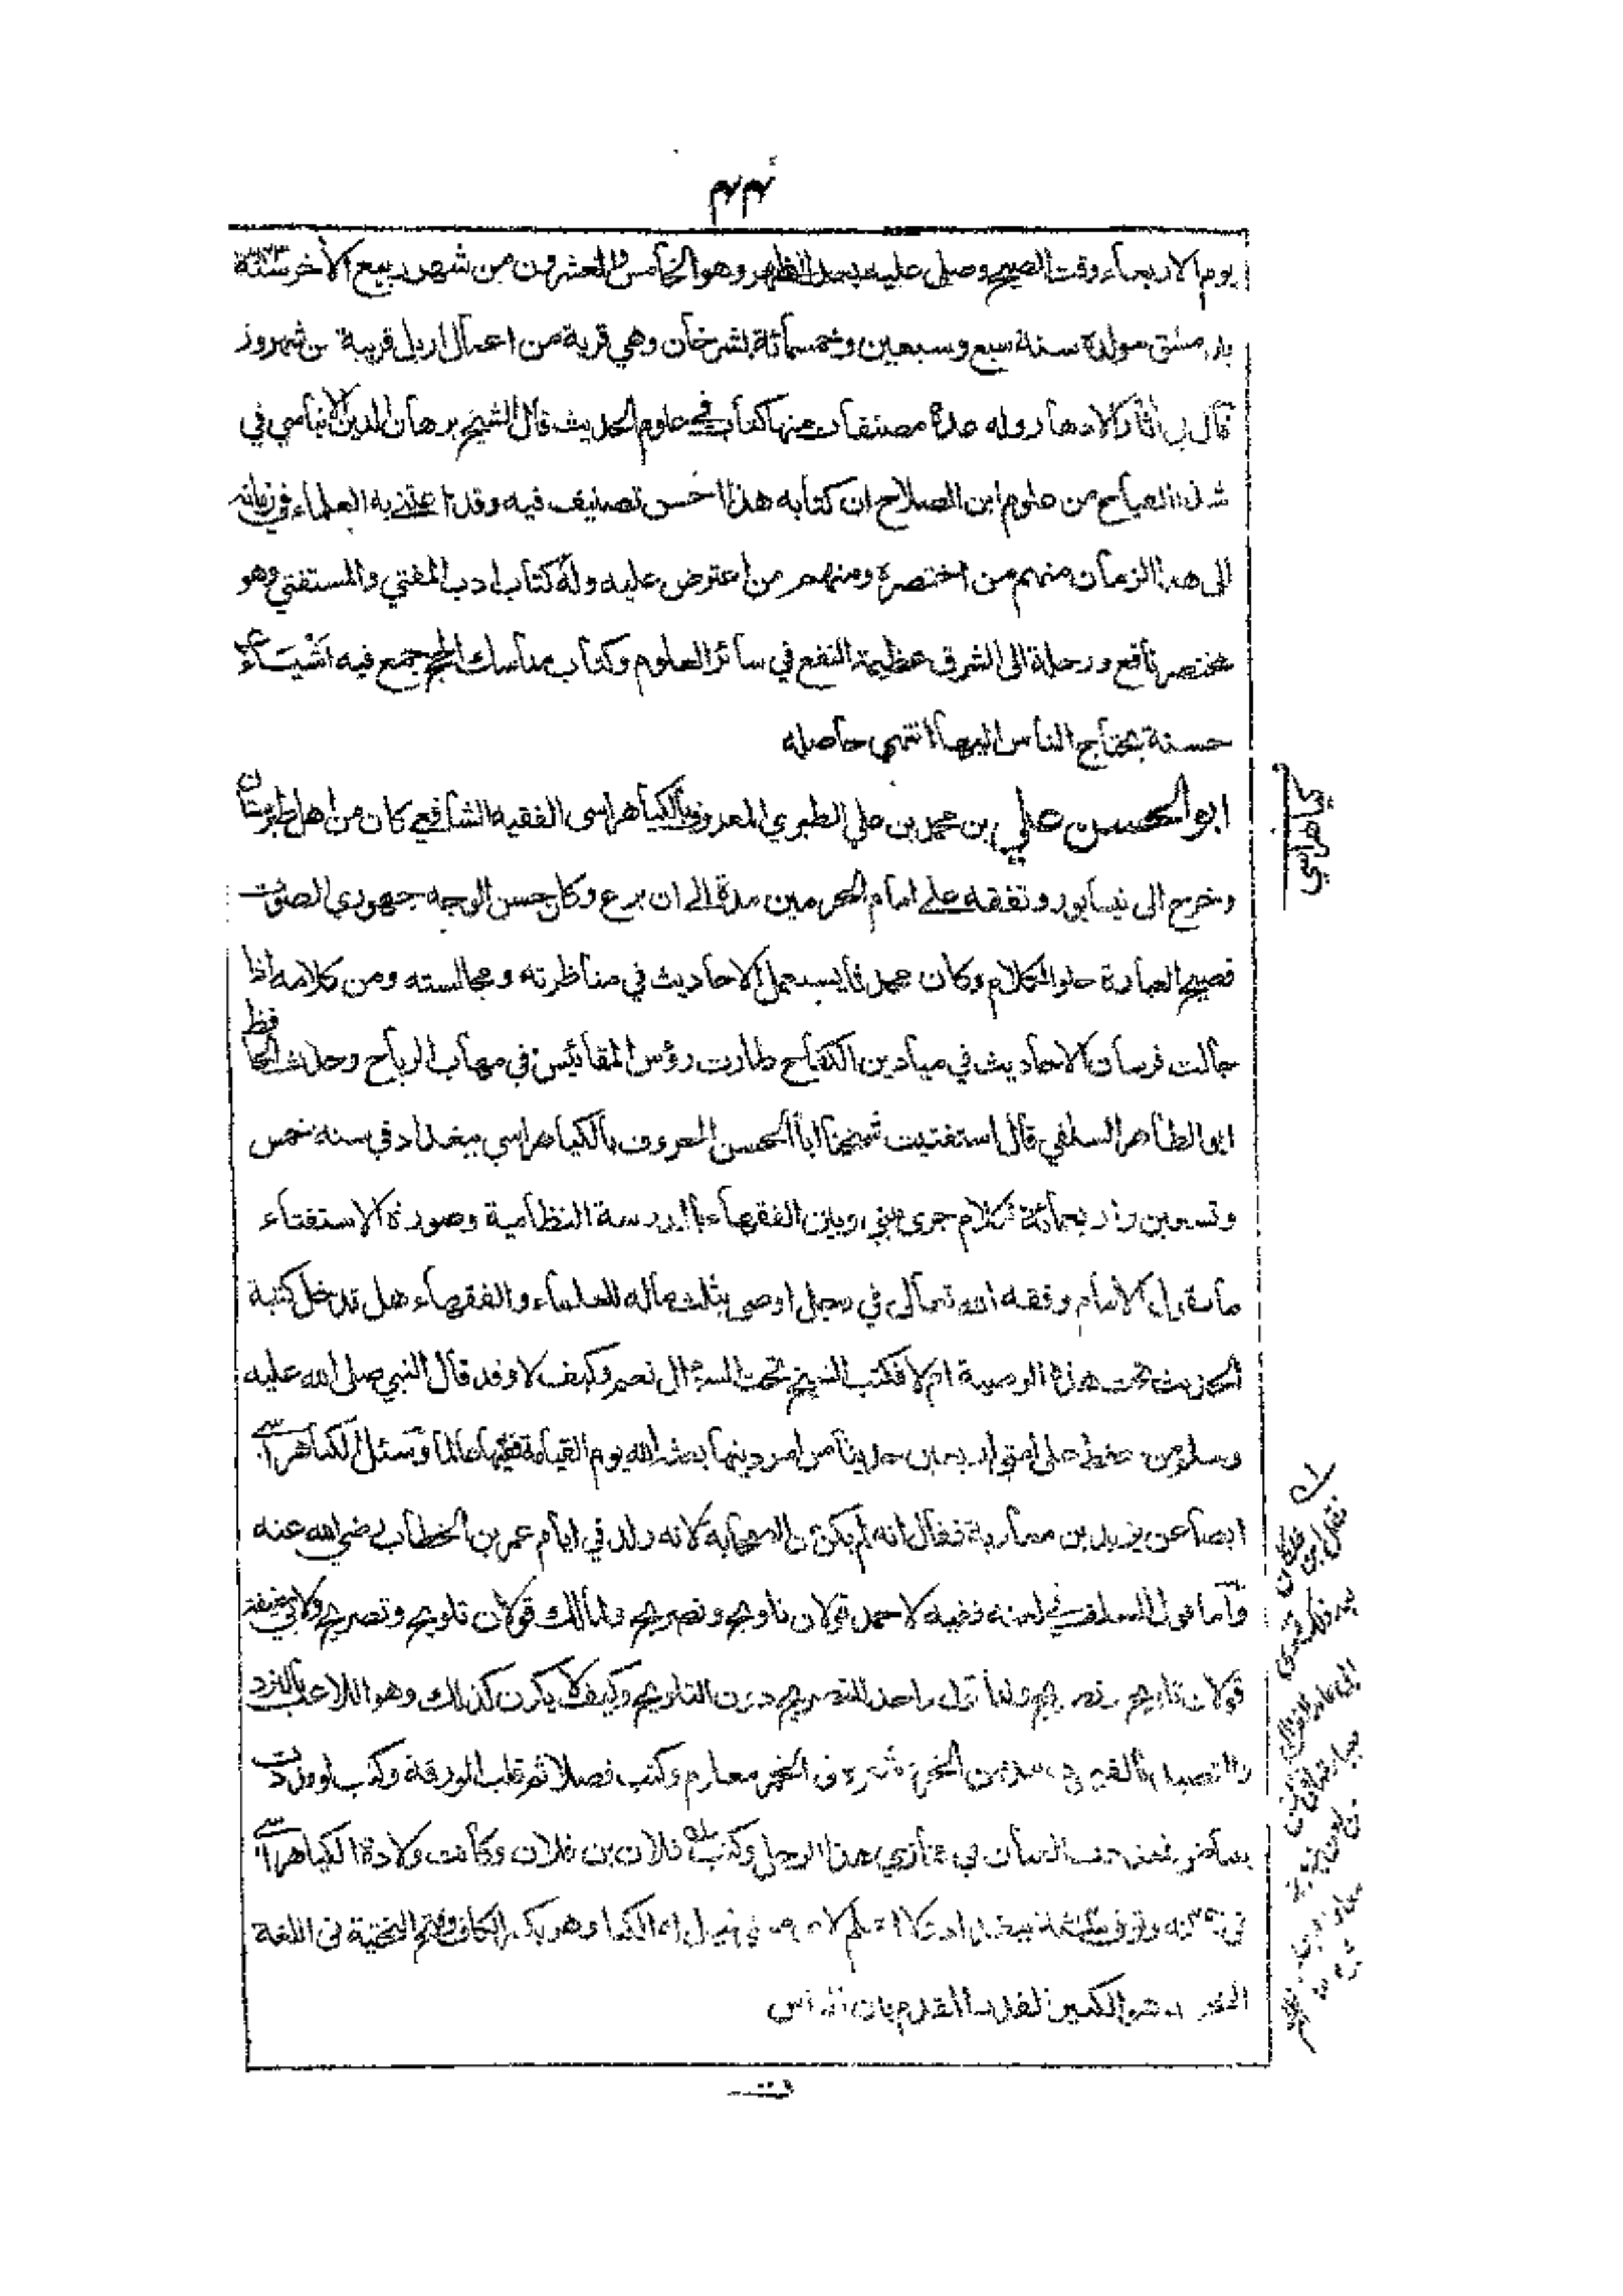 ٣٣
يوم الاربعاء وقت الصبح وصلي عليه بعد الظهر وهو الخامس والعشرون من شهر ربيع الآخر سنة
بدمشق مولده سنة سبع وسبعين وخمسمائة بشرخان وهي قرية من اعمال اربل قريبة من شهرزور
قال في اثار الادهار وله عدة مصنفات منها كتاب في علوم الحديث قال الشيخ برهان الدين الابناسي في
شذا الفياح من علوم ابن الصلاح ان كتابه هذا احسن تصنيف فيه وقد اعتنى به العلماء في زمانه
الى هذا الزمان منهم من اختصره ومنهم من اعترض عليه وله كتاب ادب المفتي والمستفتي وهو
مختصر نافع ورحلة الى الشرق عظيمة النفع في سائر العلوم وكتاب مناسك الحج جمع فيه اشياء
حسنة يحتاج الناس اليها انتهى حاصله
ابو الحسن علي بن محمد بن علي الطبري المعروف بالكياهراسي الفقيه الشافعي كان من اهل طبرستان
وخرج الى نيسابور وتفقه على امام الحرمين مدة الى ان برع وكان حسن الوجه جهوري الصوت
فصيح العبارة حلو الكلام وكان محدثا يستعمل الاحاديث في مناظرته ومجالسته ومن كلامه اذا
جالت فرسان الاحاديث في ميادين الكفاح طارت رؤس المقائيس في مهاب الرياح وحدث الحافظ
ابو الطاهر السلفي قال استفتيت شيخنا ابا الحسن المعروف بالكياهراسي ببغداد في سنة خمس
وتسعين واربعمائة لكلام جرى بيني وبين الفقهاء بالمدرسة النظامية وصورة الاستفتاء
ما يقول الامام وفقه الله تعالى في رجل اوصى بثلث ماله للعلماء والفقهاء هل تدخل كتبة
الحديث تحت هذه الوصية ام لا فكتب الشيخ تحت السؤال نعم وكيف لا وقد قال النبي صلى الله عليه
وسلم من حفظ على امتي اربعين حديثا من امر دينها بعثه الله يوم القيامة فقيها عالما وسئل الكياهراسي
ايضا عن يزيد بن معاوية فقال انه لم يكن من الصحابة لانه ولد في ايام عمر بن الخطاب رضي الله عنه
واما قول السلف في لعنه ففيه لاحمد قولان تلويح وتصريح ولمالك قولان تلويح وتصريح ولابي حنيفة
قولان تلويح وتصريح ولنا قول واحد التصريح دون التلويح وكيف لا يكون كذلك وهو اللاعب بالنرد
والمتصيد بالفهود ومدمن الخمر وشعره في الخمر معلوم وكتب فصلا ثم قلب الورقة وكتب لو مددت
ببياض لمددت العنان في مخازي هذا الرجل وكتب فلان بن فلان وكانت ولادة الكياهراسي
في سنة وتوفي سنة ببغداد لا اعلم لاي معنى قيل له الكيا وهو بكسر الكاف وفتح التحتية في اللغة
هو الكبير القدر المقدم بين الناس
كياهراسي
نقل ابن خلكان